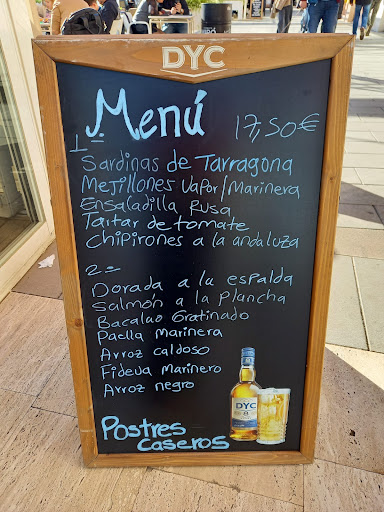 DYC
Menú 17,50€
1
Sardinas de Tarragona
Mejillones Vapor/Marinera
Ensaladilla Rusa
Tartar de tomate
Chipirones a la andaluza
2=
Dorada a la espalda
Salmón a la plancha
Bacalao Gratinado
Paella Marinera
Arroz caldoso
Fideua Marinero
Arroz negro
DYC
8
Postres
caseros